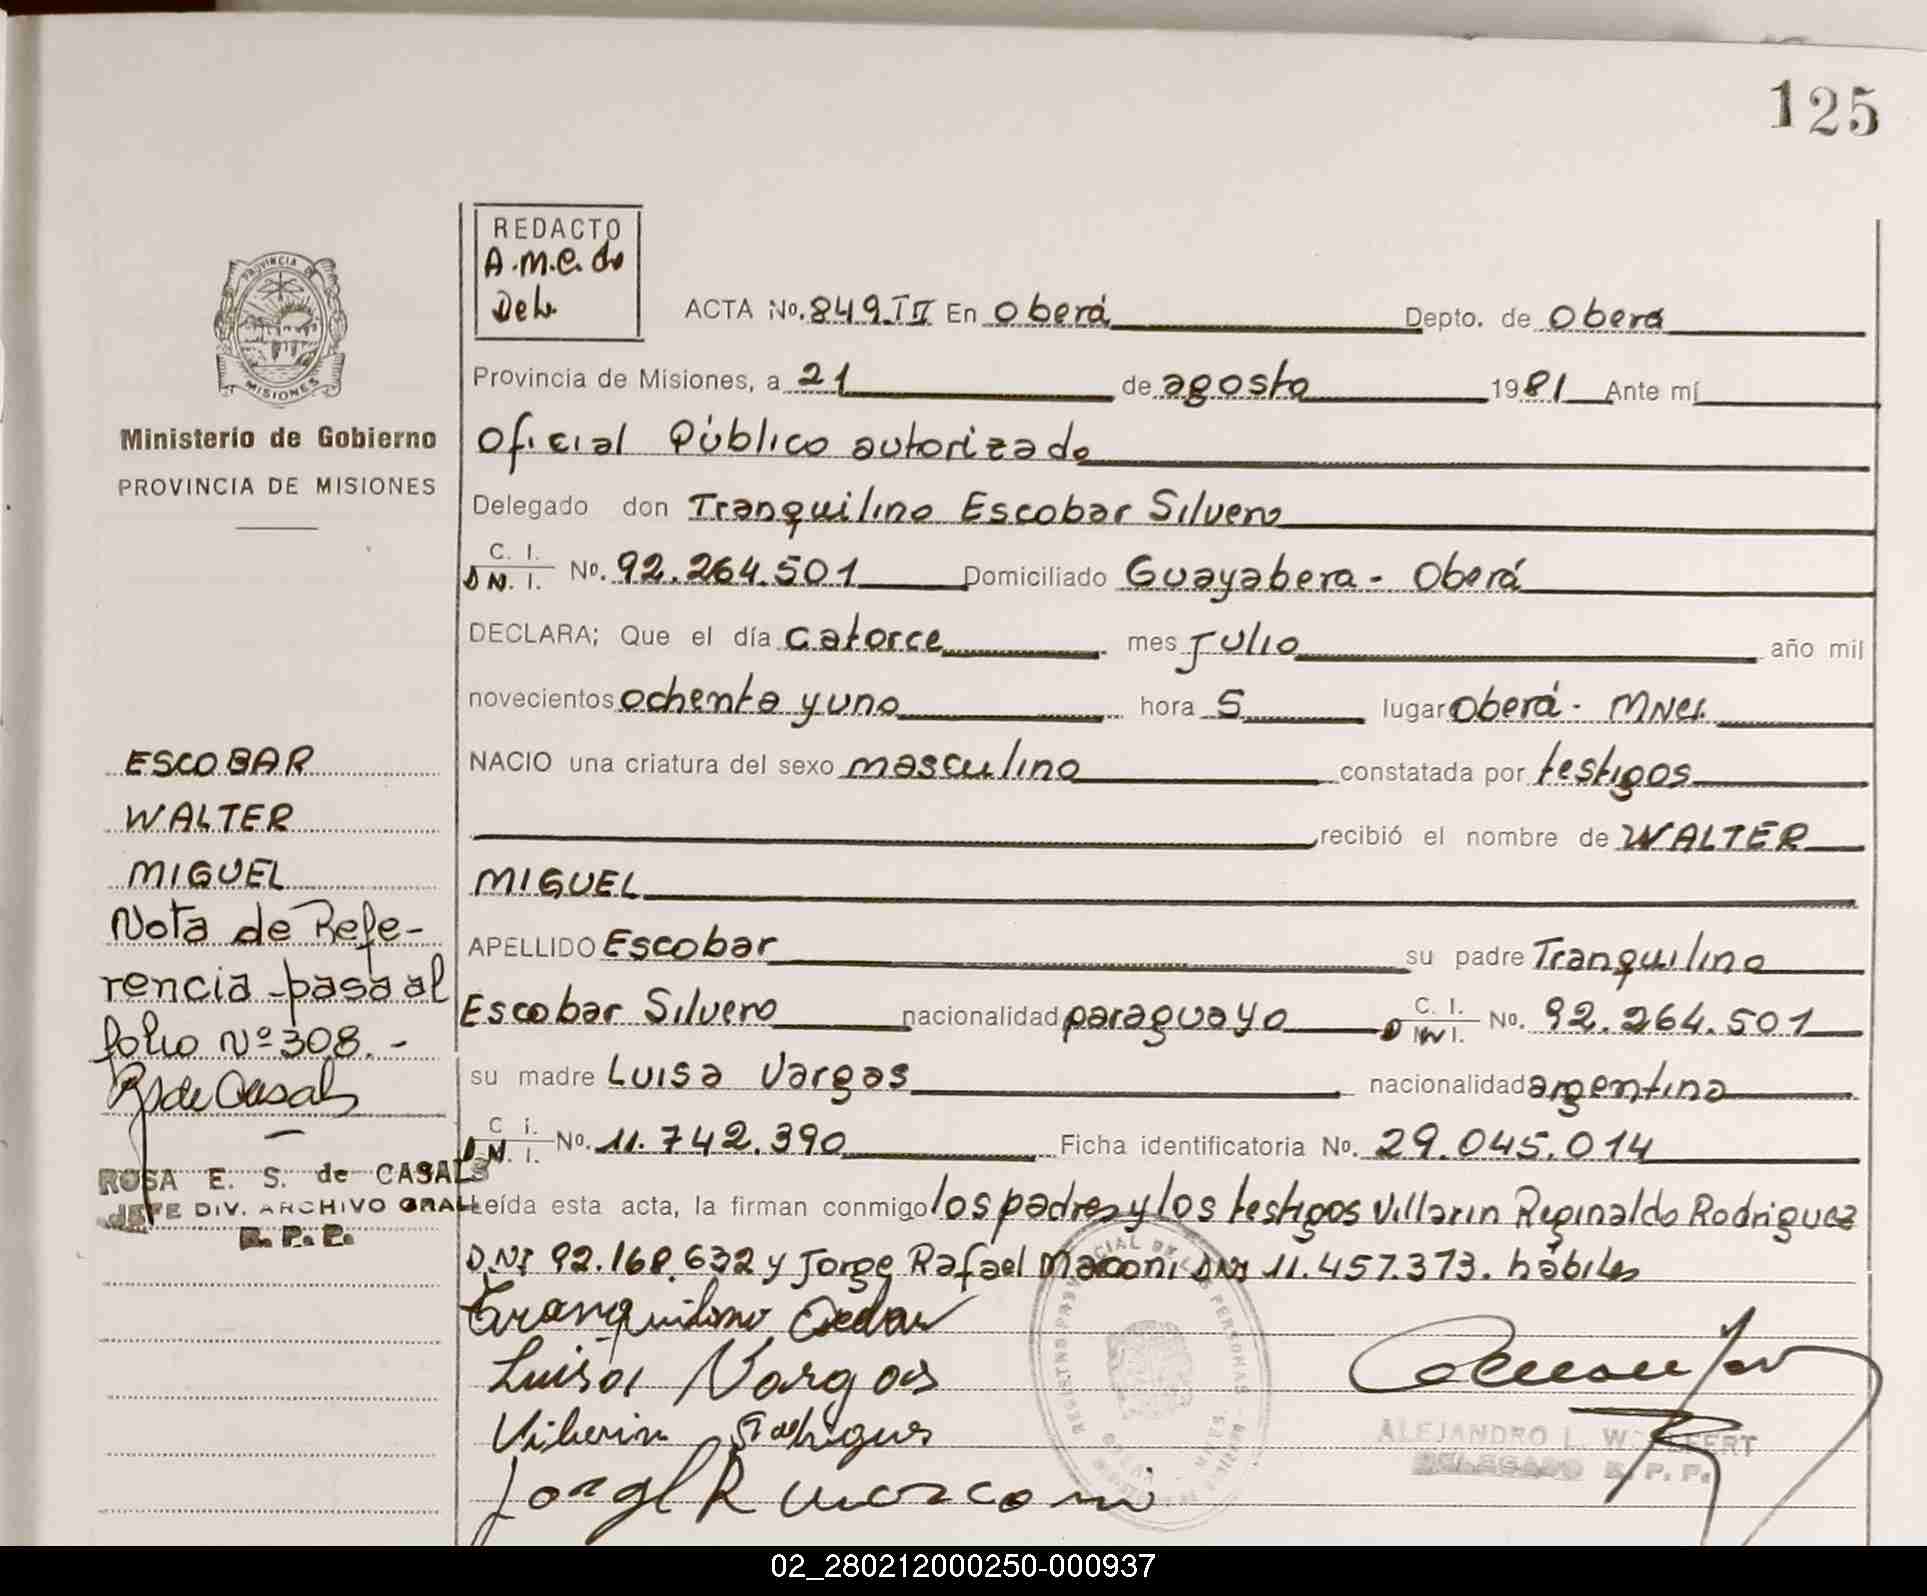 125
REDACTO
A.M.C. de
Del.
PROVINCIA DE
MISIONES
Ministerio de Gobierno
PROVINCIA DE MISIONES
ACTA No. 849 TII En Oberá Depto. de Oberá
Provincia de Misiones, a 21 de agosto 1981 Ante mí
Oficial Público autorizado
Delegado don Tranquilino Escobar Silvero
C. I.
D N. I. No. 92.264.501 Domiciliado Guayabera - Oberá
DECLARA; Que el día catorce mes Julio año mil
novecientos ochenta y uno hora 5 lugar Oberá - Mnes.
NACIO una criatura del sexo masculino constatada por testigos
recibió el nombre de WALTER
MIGUEL
APELLIDO Escobar su padre Tranquilino
Escobar Silvero nacionalidad paraguayo C. I. D N I. No. 92.264.501
su madre Luisa Vargas nacionalidad argentina
C i.
D N. I. No. 11.742.390 Ficha identificatoria No. 29.045.014
Leída esta acta, la firman conmigo los padres y los testigos Villarin Reginaldo Rodriguez
DNI 92.168.632 y Jorge Rafael Marconi DNI 11.457.373. hábiles
Luisa Vargas
Jorge R Marconi
ALEJANDRO L.
DELEGADO R. P. P.
ESCOBAR
WALTER
MIGUEL
Nota de Refe-
rencia pasa al
folio Nº 308.-
R S de Casals
ROSA E. S. de CASALS
JEFE DIV. ARCHIVO GRAL
R. P. P.
REGISTRO PROVINCIAL DE LAS PERSONAS
02_280212000250-000937